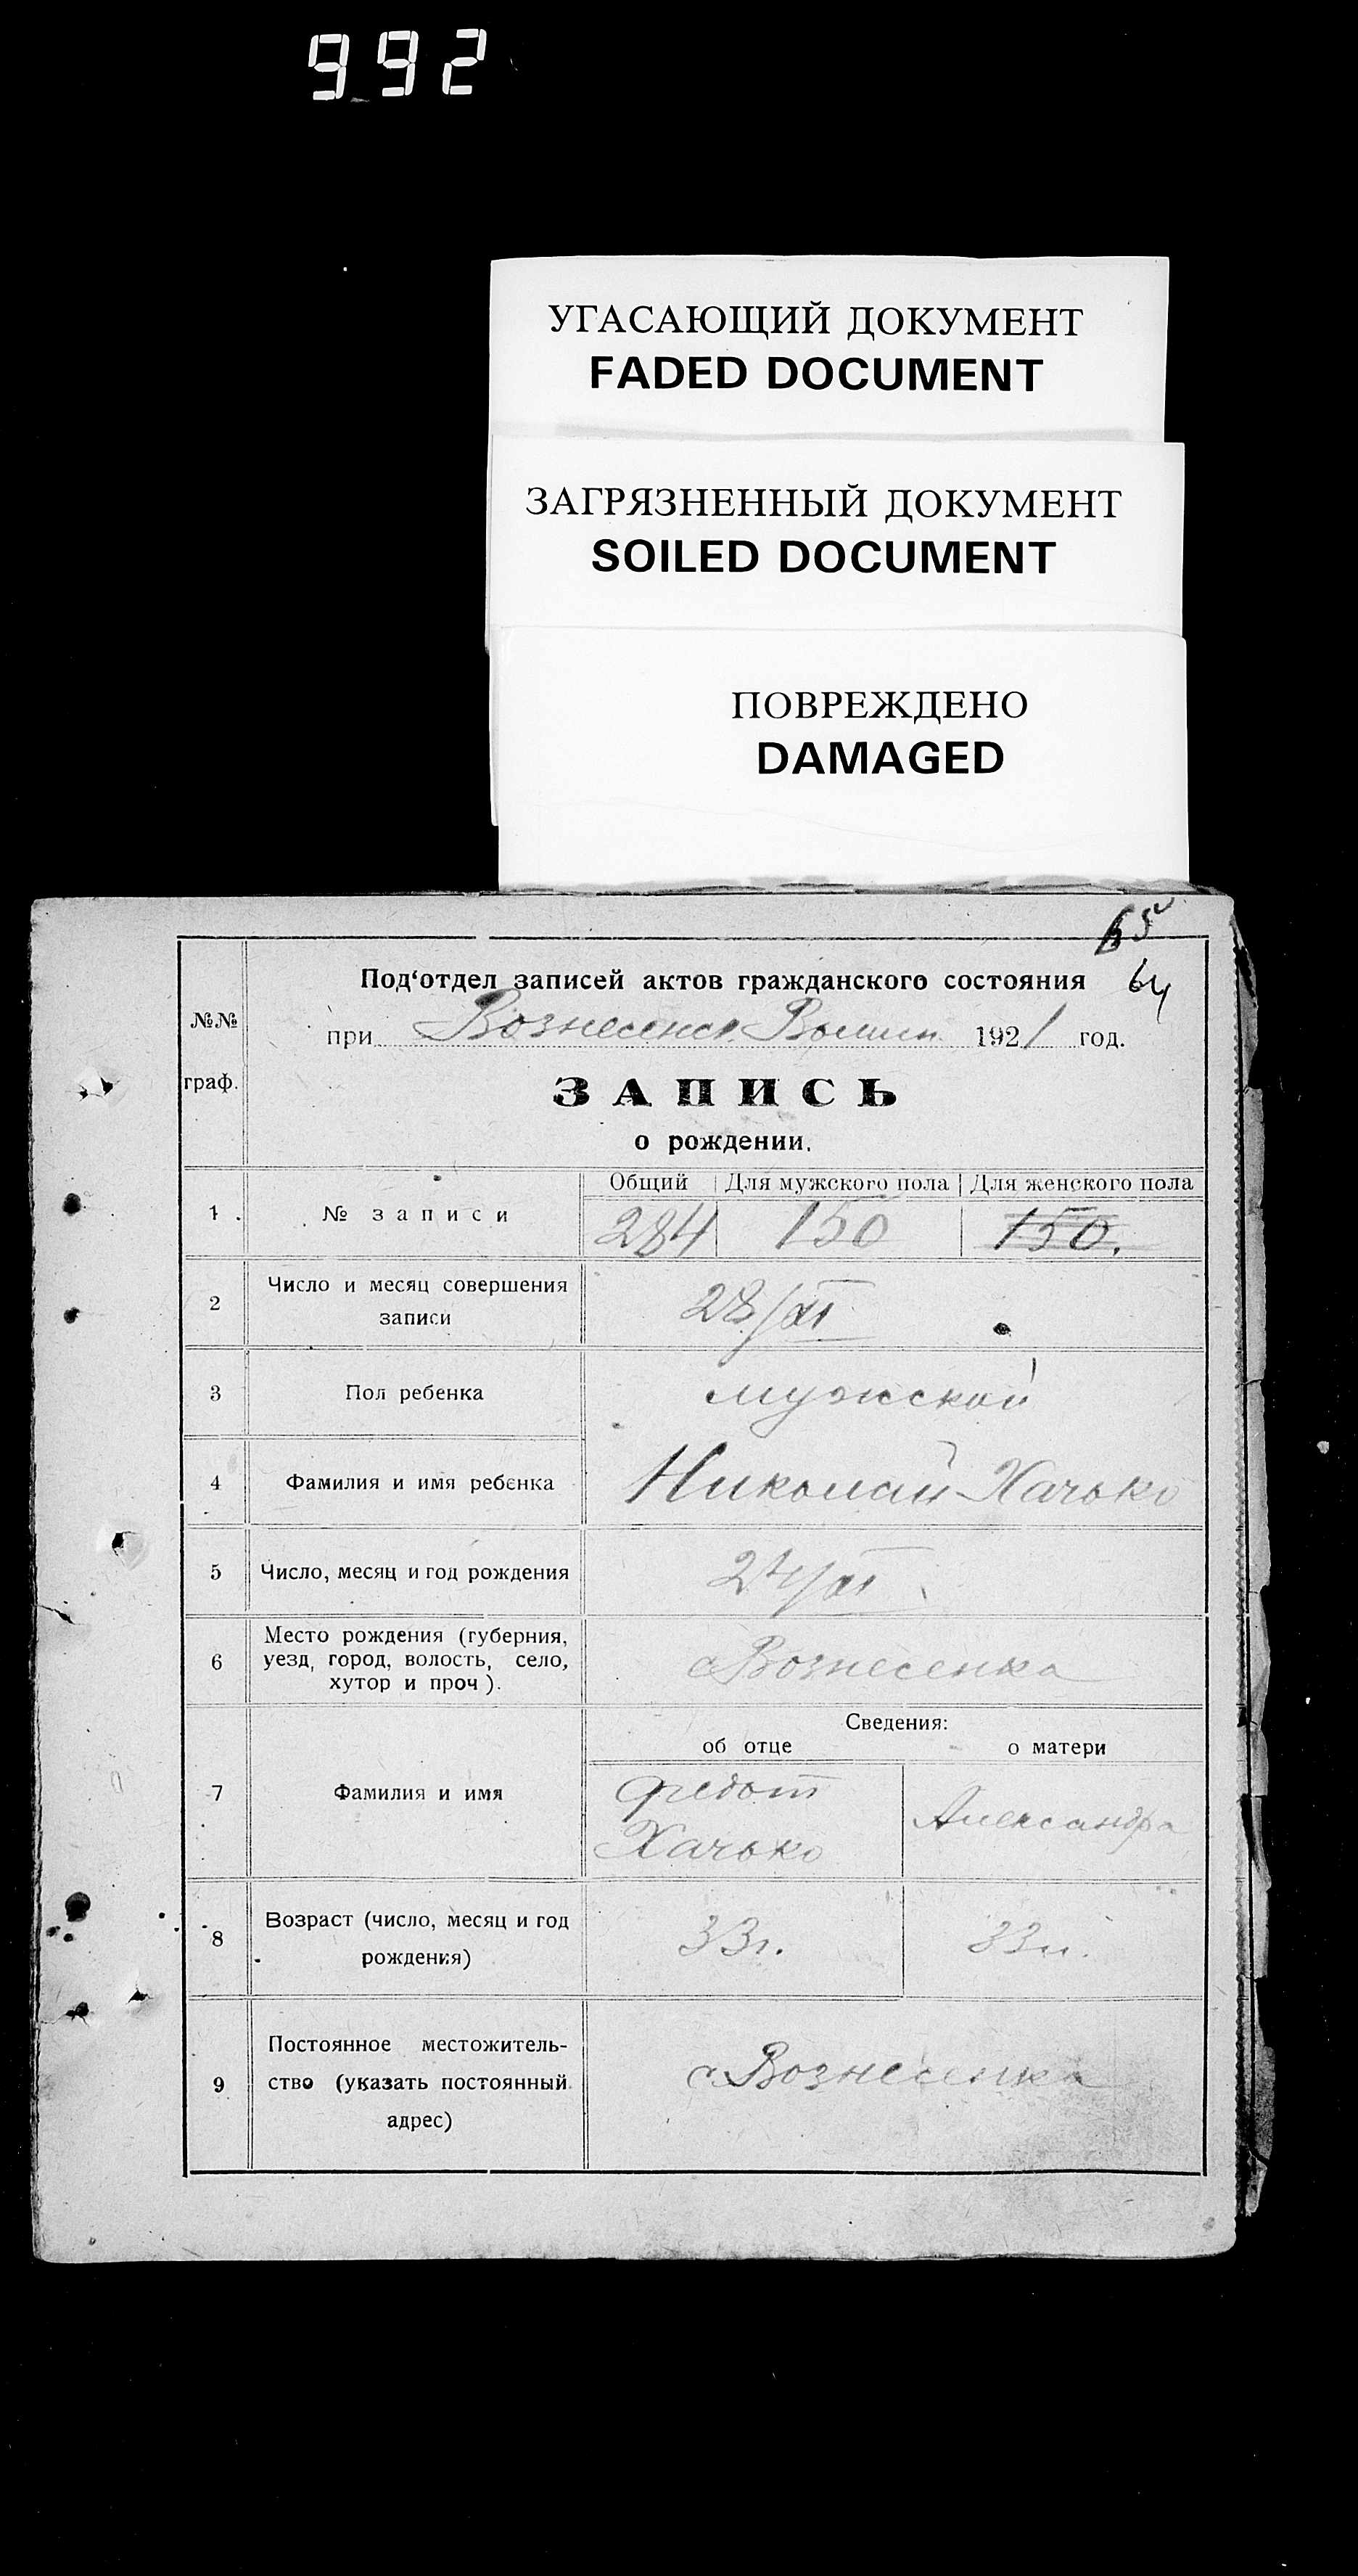 992
УГАСАЮЩИЙ ДОКУМЕНТ
FADED DOCUMENT
ЗАГРЯЗНЕННЫЙ ДОКУМЕНТ
SOILED DOCUMENT
ПОВРЕЖДЕНО
DAMAGED
65
64
Под‘отдел записей актов гражданского состояния
№№ граф.
при Вознесенск. 1921 год.
ЗАПИСЬ
о рождении.
Общий Для мужского пола Для женского пола
1 № записи 284 150 150.
2 Число и месяц совершения
записи 28/XI
3 Пол ребенка мужской
4 Фамилия и имя ребенка Николай Хачько
5 Число, месяц и год рождения 24/XI
6 Место рождения (губерния,
уезд, город, волость, село,
хутор и проч). с Вознесенка
Сведения:
об отце о матери
7 Фамилия и имя Федот
Хачько Александра
8 Возраст (число, месяц и год
рождения) 33г. 33
9 Постоянное местожитель-
ство (указать постоянный
адрес) с. Вознесенка